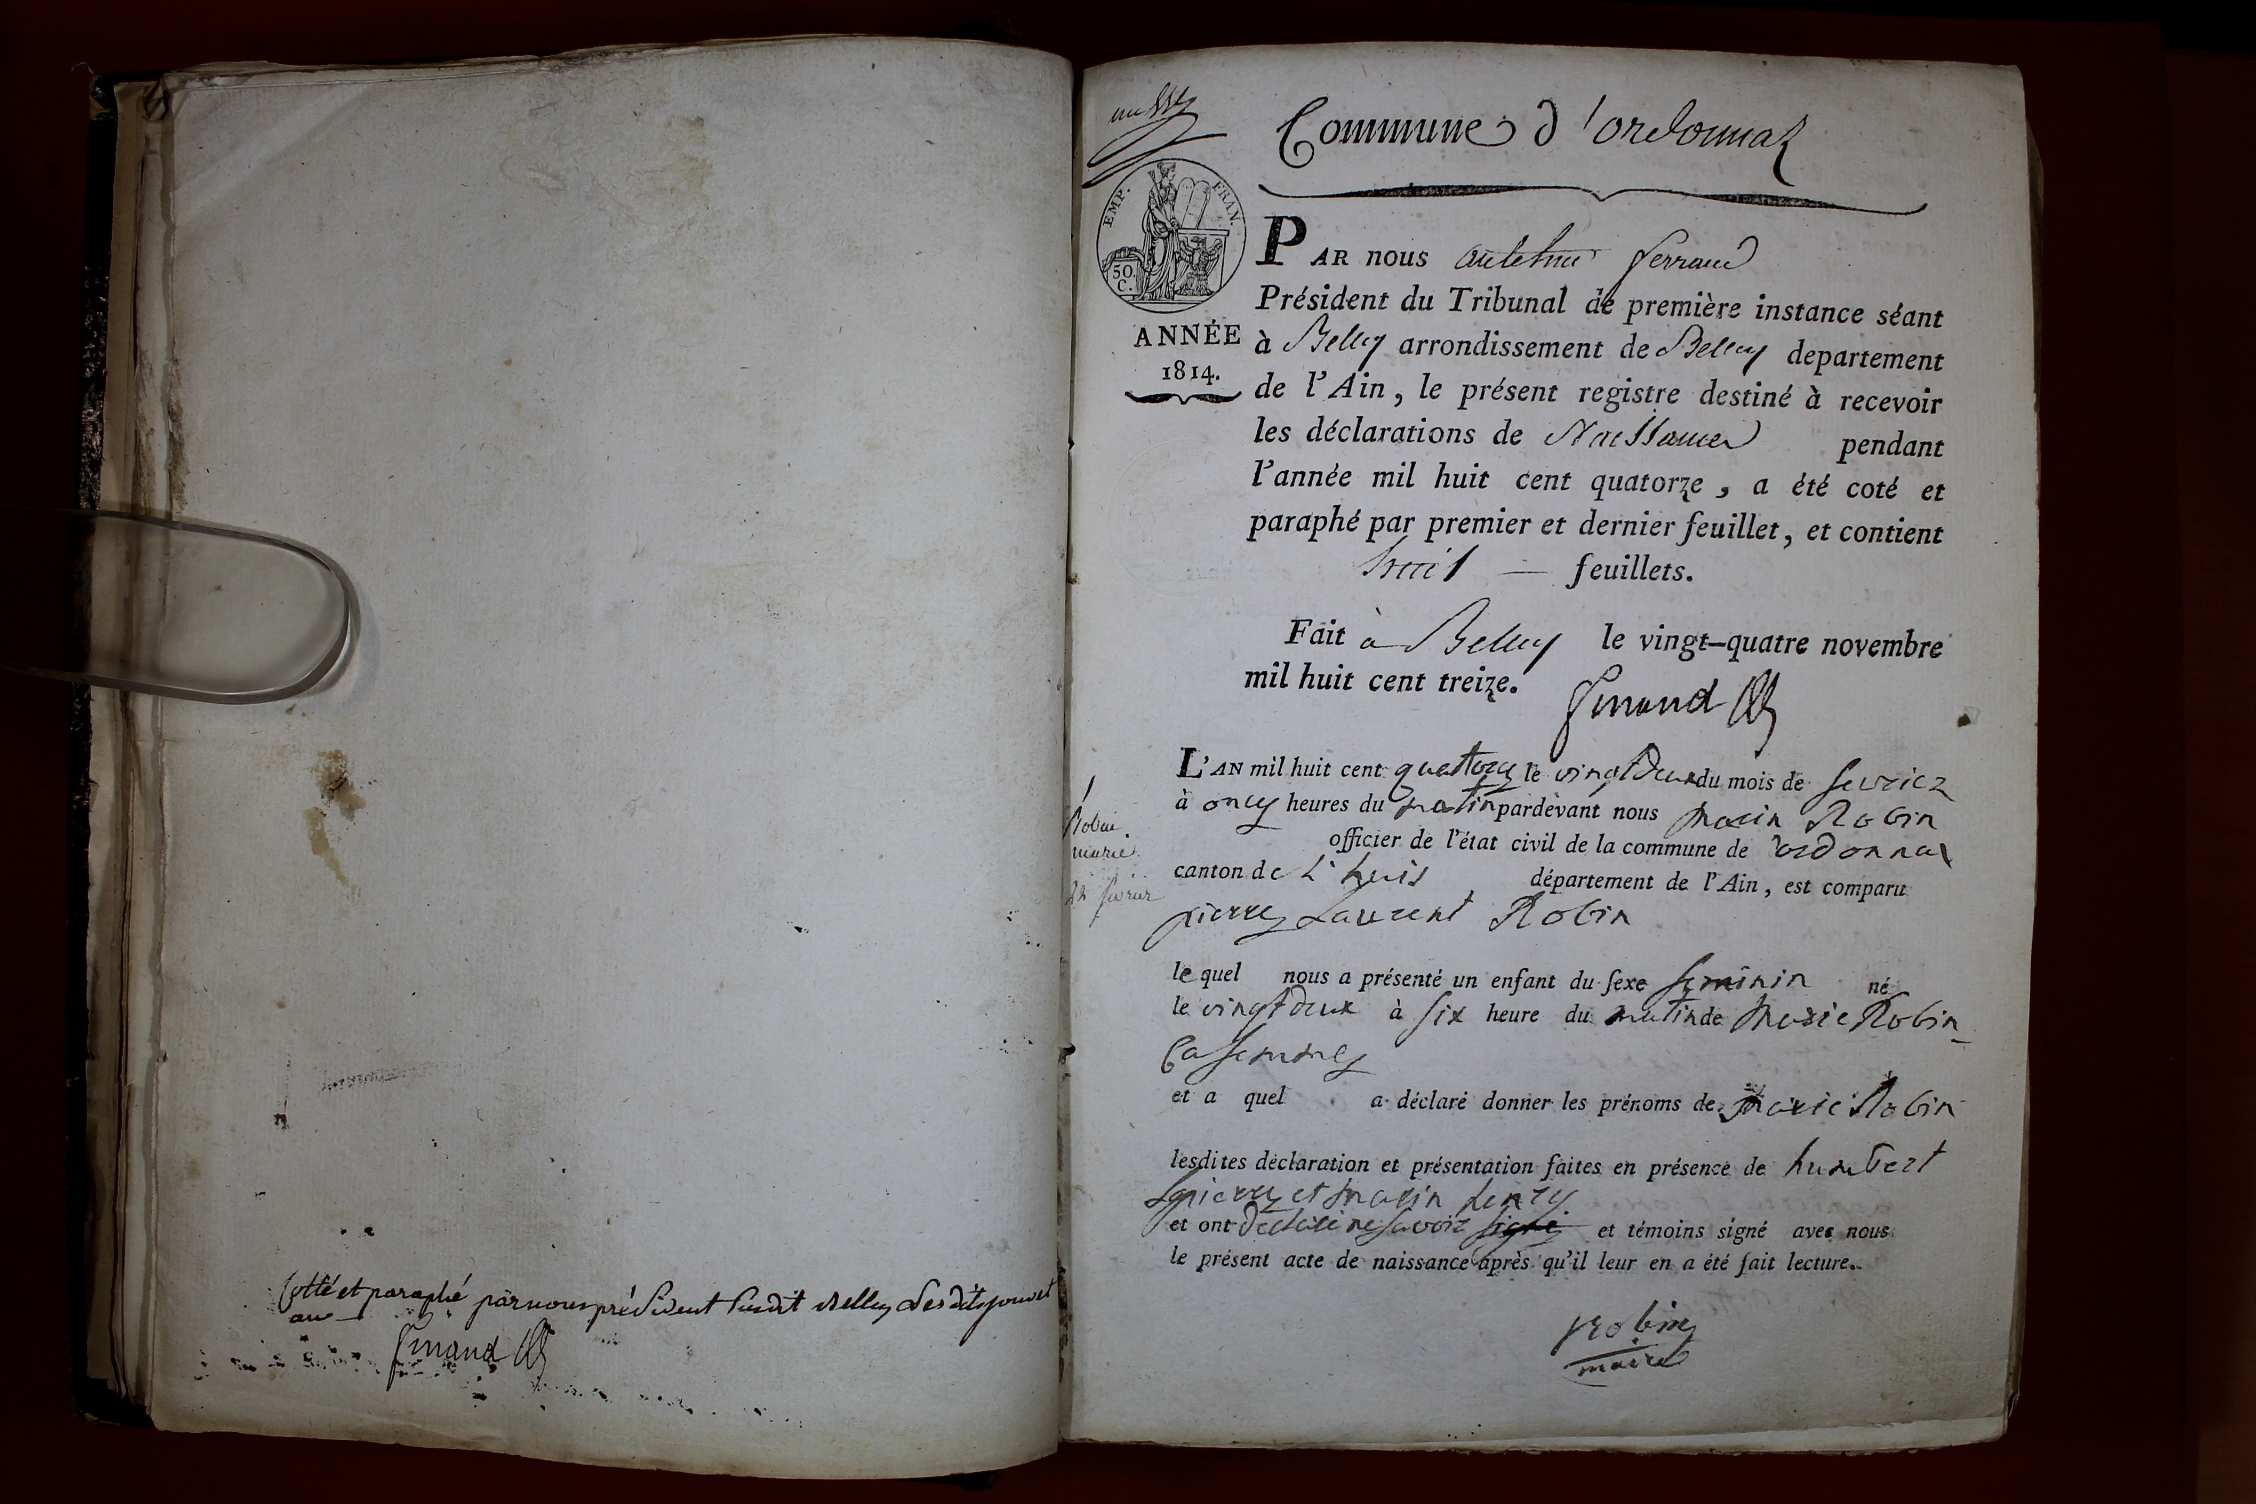 Cotté et paraphé par nous président susdit Belley les dits jour et
an
Ferrand
Commune d'ordonnaz
EMP. FRAN.
50 C.
ANNÉE
1814.
PAR nous anthelme ferrand
Président du Tribunal de première instance séant
à Belley arrondissement de Belley departement
de l'Ain, le présent registre destiné à recevoir
les déclarations de Naissances pendant
l'année mil huit cent quatorze, a été coté et
paraphé par premier et dernier feuillet, et contient
huit — feuillets.
Fait à Belley le vingt-quatre novembre
mil huit cent treize.
Ferrand
1
Robin
marie
22 fevrier
L'AN mil huit cent quatorze le vingt deux du mois de fevrier
à onze heures du matin pardevant nous marin Robin
officier de l'état civil de la commune de 'ordonnas
canton de L'huis département de l'Ain, est comparu
pierre Laurent Robin
lequel nous a présenté un enfant du sexe feminin né
le vingt deux à six heure du matin de marie Robin
Ca femme
et a quel a déclaré donner les prénoms de marie Robin
lesdites déclaration et présentation faites en présence de humbert
pierre et marin henry
et ont declaré ne savoir signé et témoins signé avec nous
le présent acte de naissance après qu'il leur en a été fait lecture.
Robin
maire